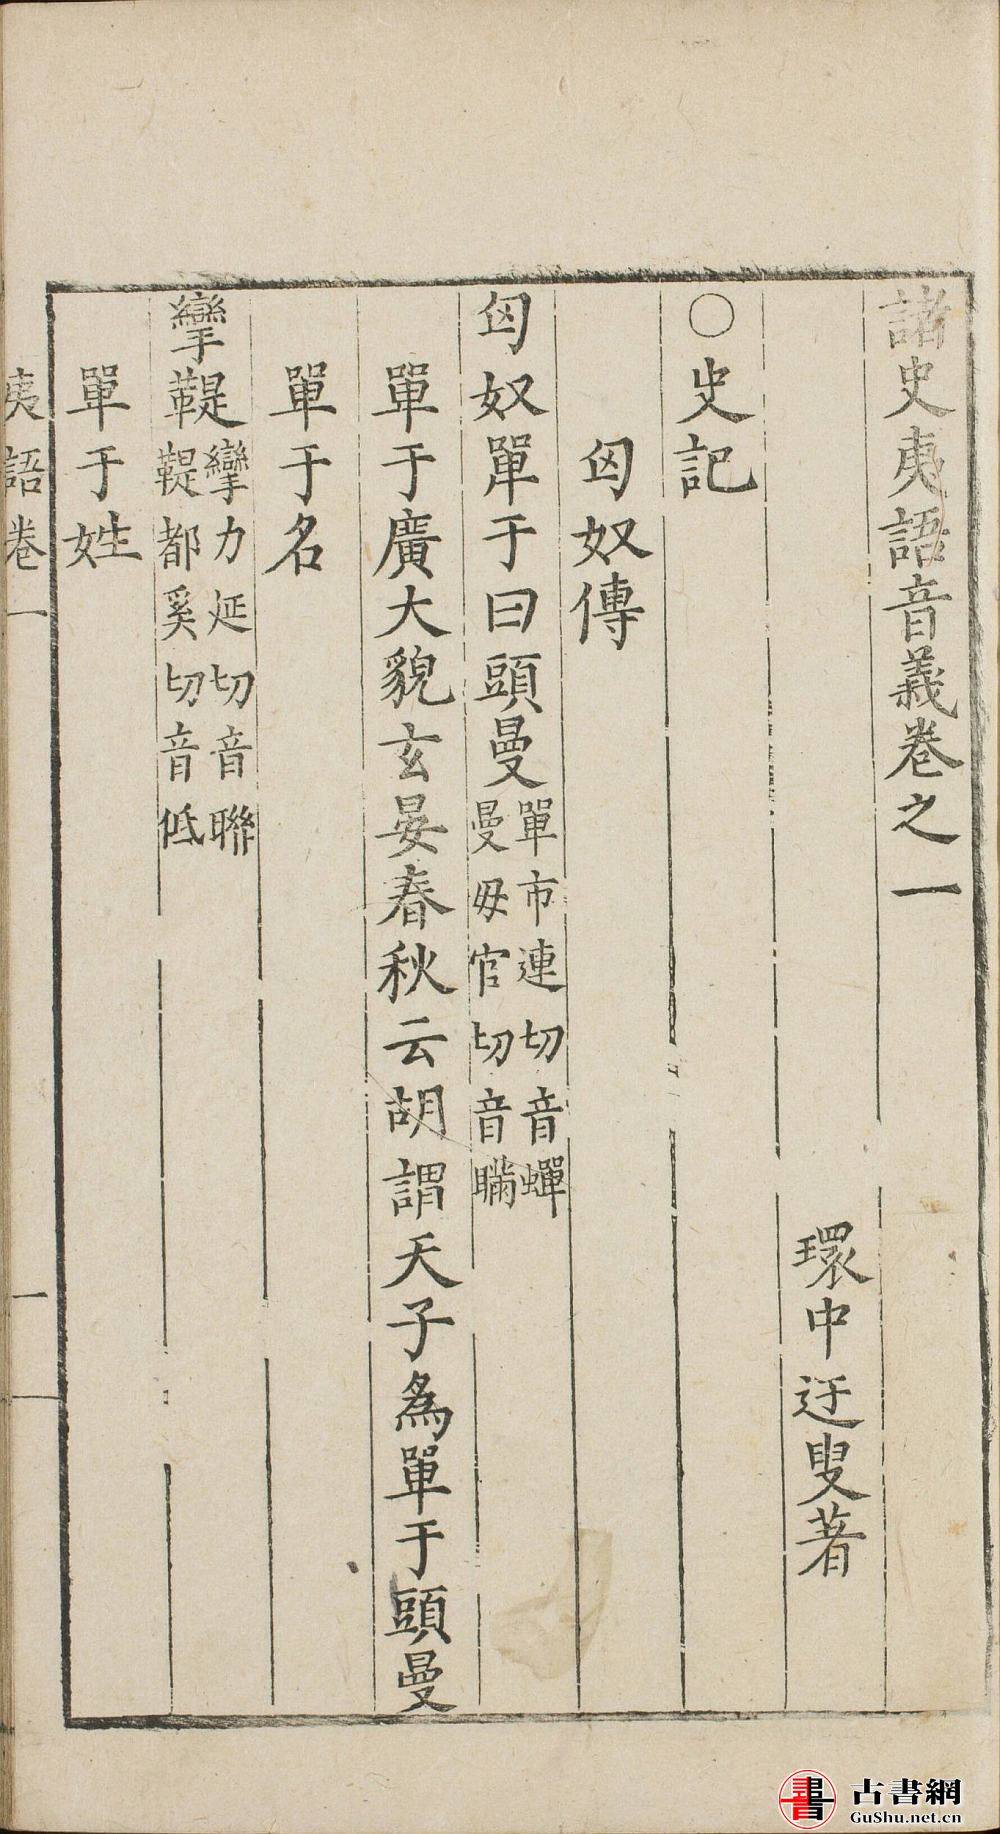 諸史夷語音義卷之一
環中迂叟著
○史記
匈奴傳
匈奴單于曰頭曼單市連切音蟬
曼毋官切音瞞
單于廣大貌玄晏春秋云胡謂天子為單于頭曼
單于名
攣鞮攣力延切音聯
鞮都奚切音低
單于姓
夷語卷一
一
古書網
GuShu.net.cn